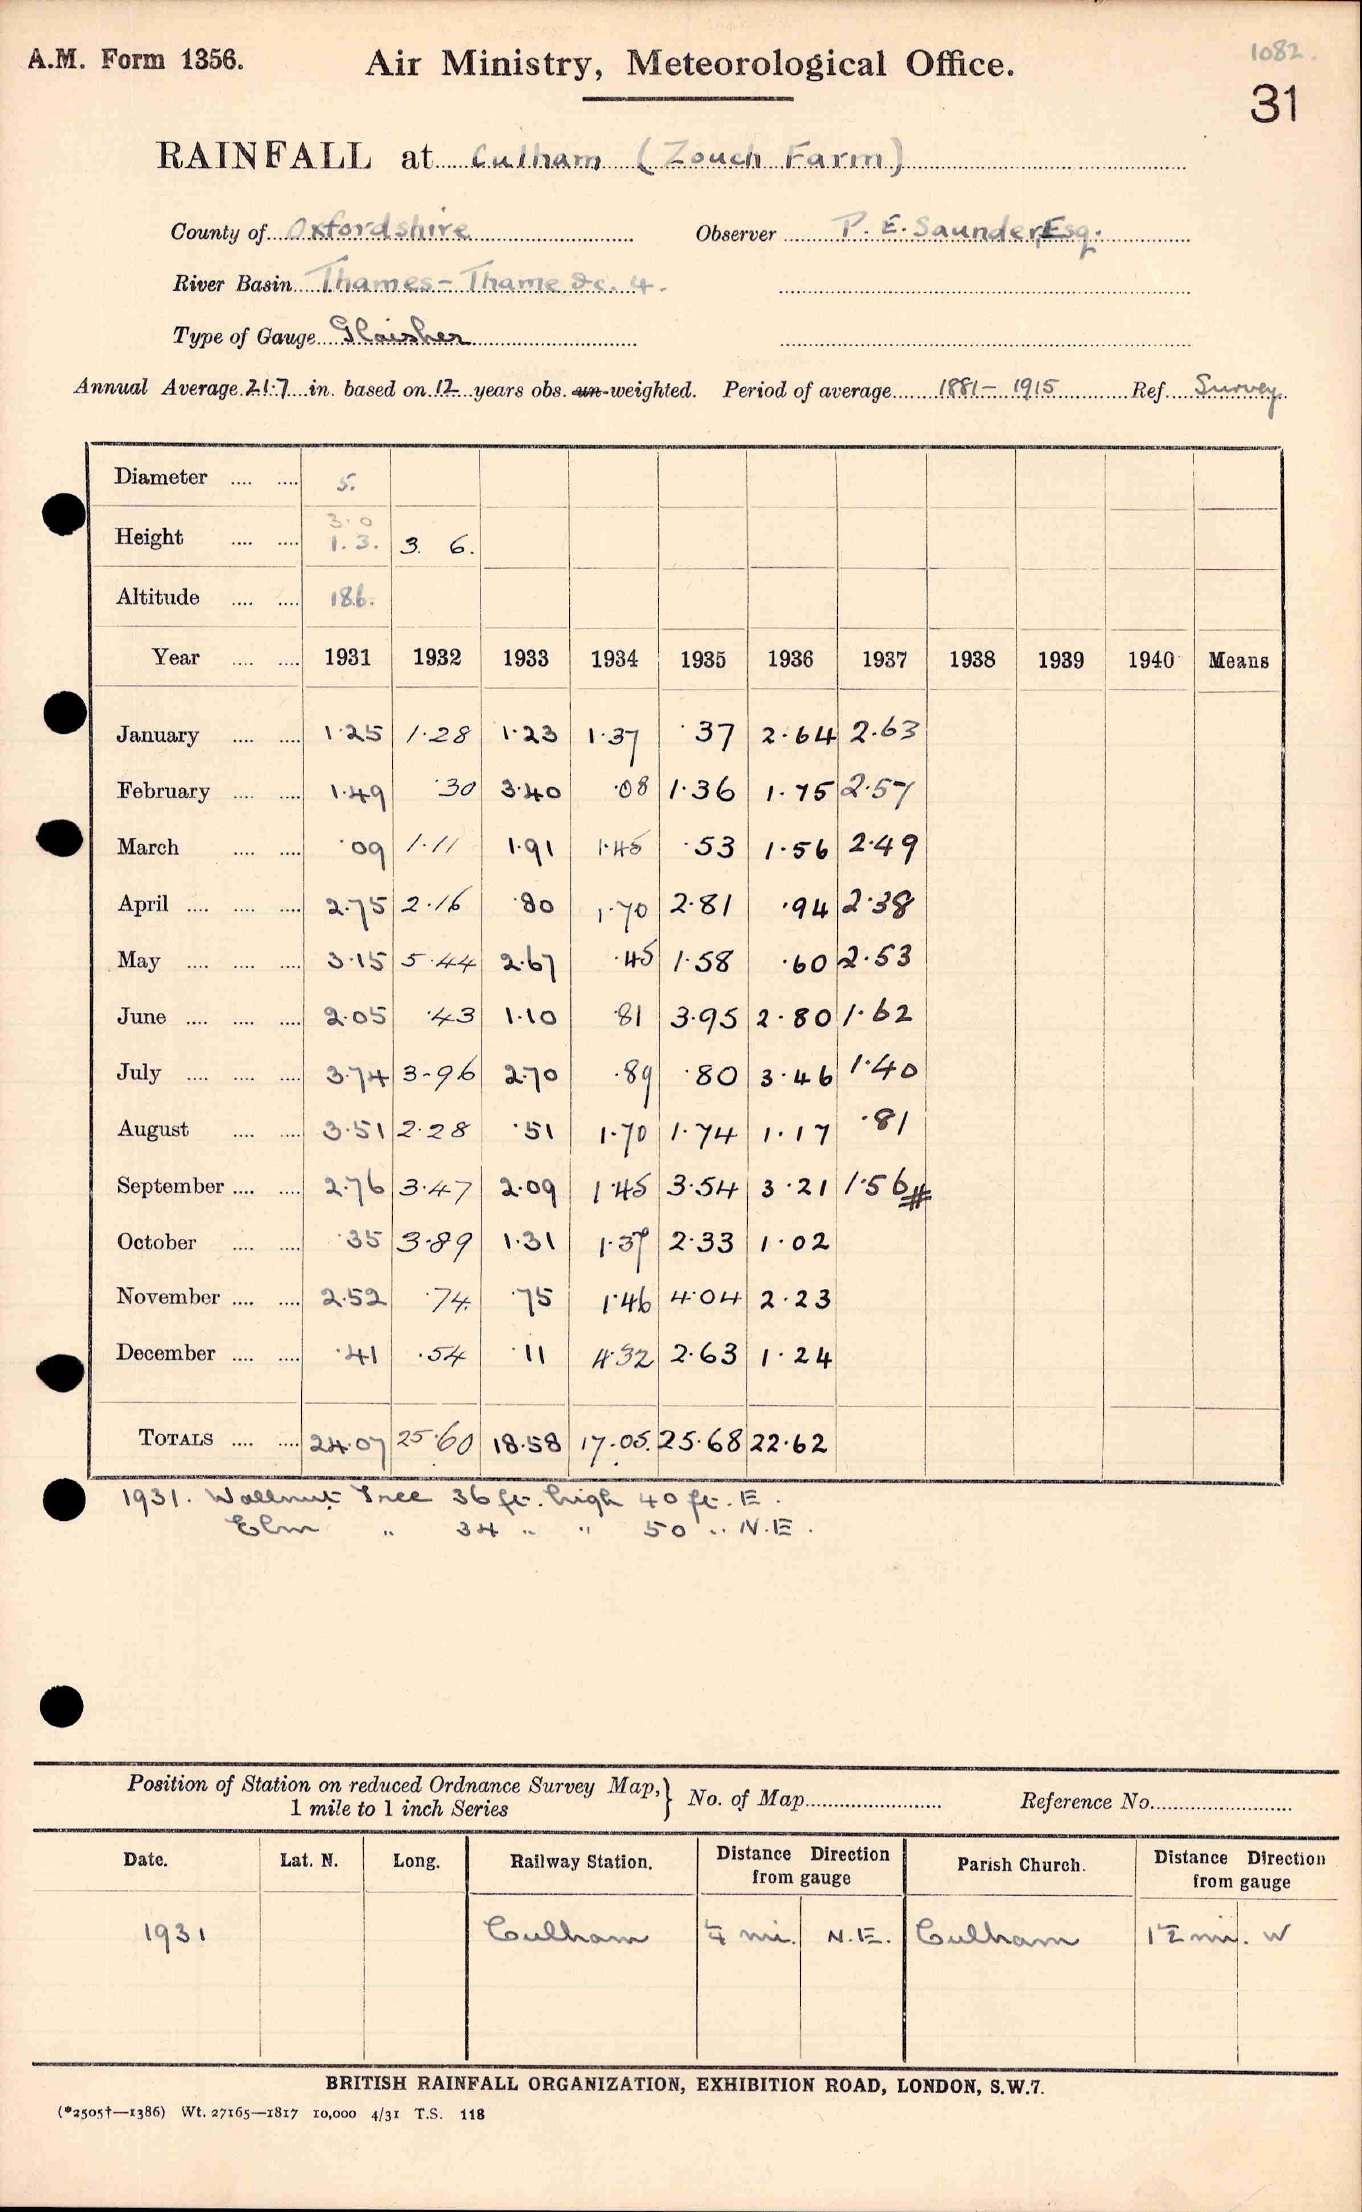 A.M. Form 1356. Air Ministry, Meteorological Office. 1082.
31
RAINFALL at Culham (Zouch Farm)
County of Oxfordshire Observer P. E. Saunder, Esq.
River Basin Thames - Thame &c. 4.
Type of Gauge Glaisher
Annual Average 21.7 in. based on 12 years obs. un-weighted. Period of average 1881 - 1915 Ref. Survey
Diameter .... .... 5.
3.0
Height .... .... 1.3. 3. 6.
Altitude .... .... 186.
Year .... .... 1931 1932 1933 1934 1935 1936 1937 1938 1939 1940 Means
January .... .... 1.25 1.28 1.23 1.37 .37 2.64 2.63
February .... .... 1.49 .30 3.40 .08 1.36 1.75 2.57
March .... .... .09 1.11 1.91 1.45 .53 1.56 2.49
April .... .... .... 2.75 2.16 .80 1.70 2.81 .94 2.38
May .... .... .... 3.15 5.44 2.67 .45 1.58 .60 2.53
June .... .... .... 2.05 .43 1.10 .81 3.95 2.80 1.62
July .... .... .... 3.74 3.96 2.70 .89 .80 3.46 1.40
August .... .... 3.51 2.28 .51 1.70 1.74 1.17 .81
September .... .... 2.76 3.47 2.09 1.45 3.54 3.21 1.56#
October .... .... .35 3.89 1.31 1.37 2.33 1.02
November .... .... 2.52 .74 .75 1.46 4.04 2.23
December .... .... .41 .54 .11 4.32 2.63 1.24
TOTALS .... .... 24.07 25.60 18.58 17.05. 25.68 22.62
1931. Wallnut Tree 36 ft. high 40 ft. E.
Elm " 34 " " 50 " N.E.
Position of Station on reduced Ordnance Survey Map, } No. of Map Reference No.
1 mile to 1 inch Series
Date. Lat. N. Long. Railway Station. Distance Direction from gauge Parish Church. Distance Direction from gauge
1931 Culham ¼ mi. N.E. Culham 1½ mi. W
BRITISH RAINFALL ORGANIZATION, EXHIBITION ROAD, LONDON, S.W.7.
(*2505†—1386) Wt. 27165—1817 10,000 4/31 T.S. 118